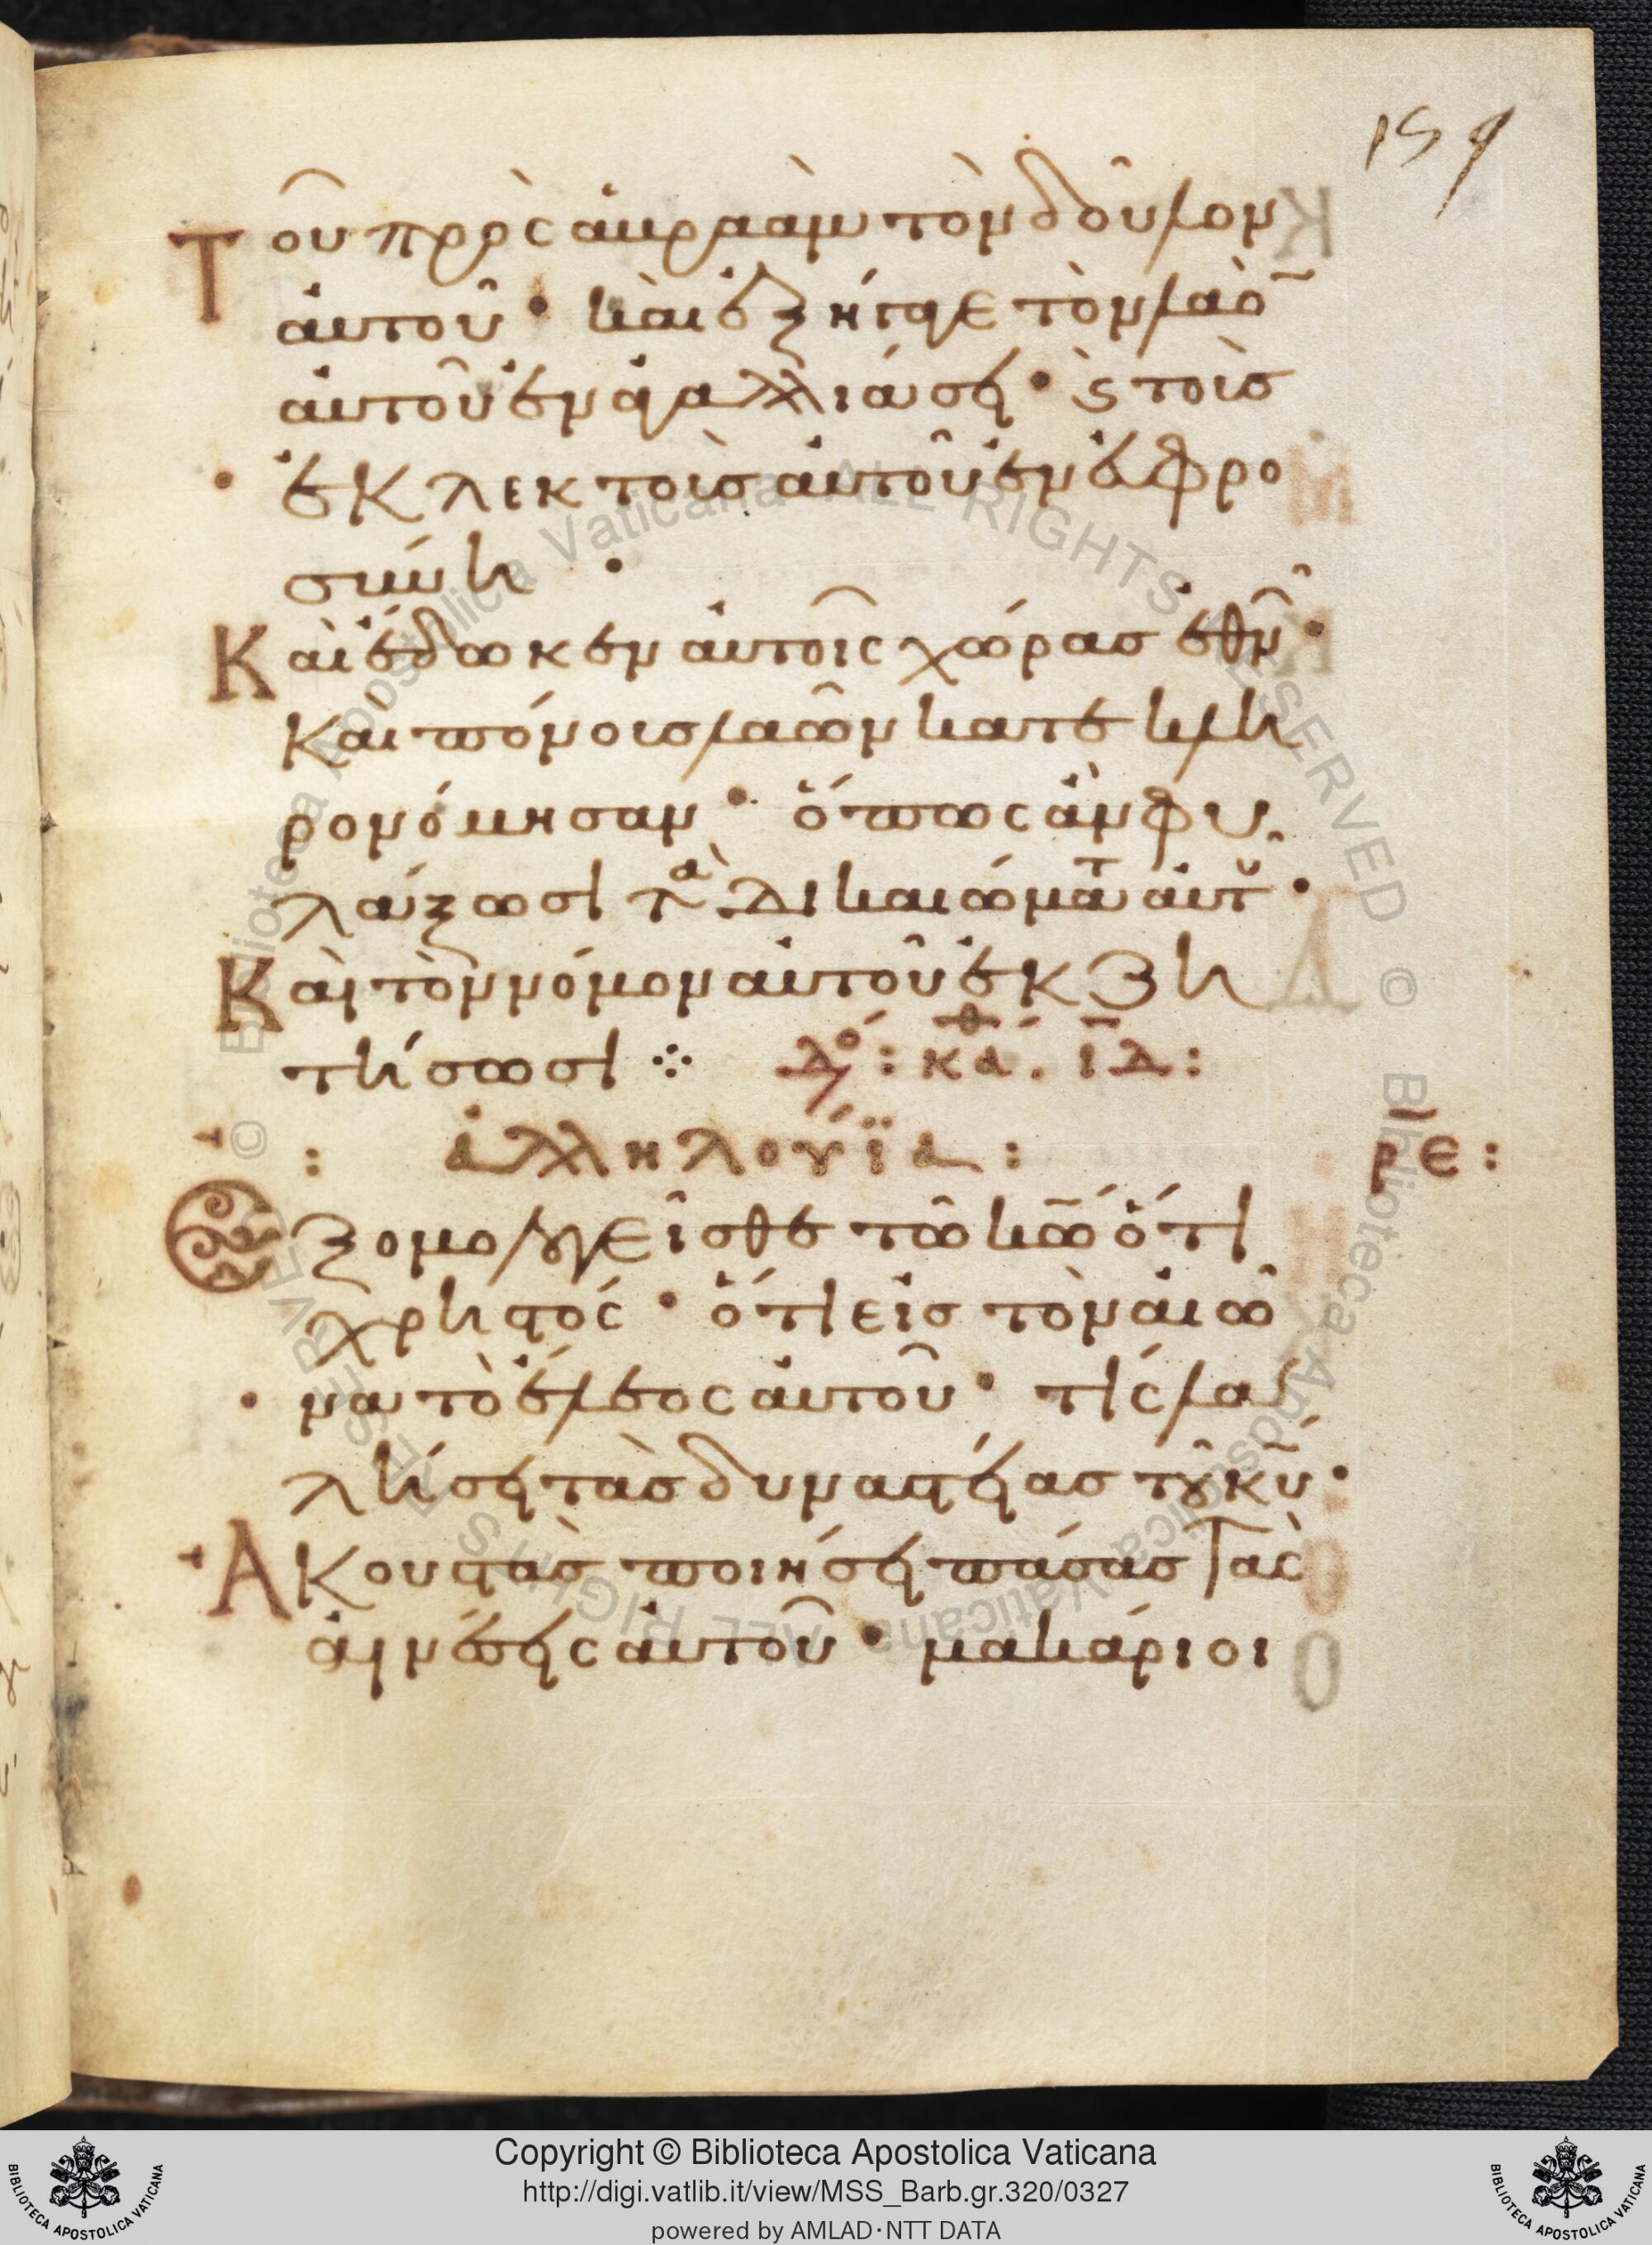 159
Τοῦ πρὸς ἀβραὰμ τὸν δοῦλον
ἀυτοῦ· καὶ ἐξήγαγε τὸν λαὸ̄
ἀυτοῦ ἐν ἀγαλλιάσει· ϗ τοὺς
ἐκλεκτοὺς ἀυτοῦ ἐν ἐυφρο
σύνη·
Καὶ ἔδωκεν ἀυτοῖς χώρας ἐθν͂·
καὶ πόνους λαῶν κατεκλη
ρονόμησαν· ὅπως ἂν φυ
λάξωσι τὰ δικαιώματ ἀυτȣ͂·
Καὶ τὸν νόμον ἀυτοῦ ἐκζη
τήσωσι ⁘ Δο: κάθ. ι̅δ:
: ἀλληλούϊα: ρ̅ε:
Ἐξομολογεῖσθε τῶ κ̅ω̅ ὅτι
χρηστός· ὅτι εἰς τὸν αἰῶ
να τὸ ἔλεος ἀυτοῦ· τίς λα
λήσει τὰς δυναστείας τȣ͂ κ̅υ̅·
Ἀκουστὰς ποιήσει πάσας τὰς
ἀινέσεις ἀυτοῦ· μακάριοι
© Biblioteca Apostolica Vaticana ALL RIGHTS RESERVED
© Biblioteca Apostolica Vaticana ALL RIGHTS RESERVED
Copyright © Biblioteca Apostolica Vaticana
http://digi.vatlib.it/view/MSS_Barb.gr.320/0327
powered by AMLAD·NTT DATA
BIBLIOTECA APOSTOLICA VATICANA
BIBLIOTECA APOSTOLICA VATICANA